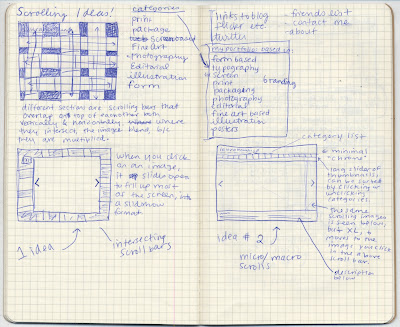 Scrolling Ideas!
categories
print
package
screen based
Fine Art
photography
Editorial
illustration
form
different sections are scrolling bars that
overlap on top of eachother both
vertically & horizontally. where
they intersect, the images blend, b/c
they are multiplied.
when you click
on an image,
it slides open
to fill up most
of the screen, into
a slideshow
format
1 idea
intersecting
scroll bars
links to blog
flickr etc
twitter
- friends list
- contact me
- about
my portfolio based in:
form based
typography
screen
print
branding
packaging
photography
editorial
fine art based
illustration
posters
category list
minimal
"chrome"
long slider of
thumbnails
can be sorted
by clicking or
unclicking
categories.
the same
scrolling images
as seen above,
but XL,
moves to the
image you click
in the above
scroll bar.
description
below
idea # 2
micro/macro
scrolls